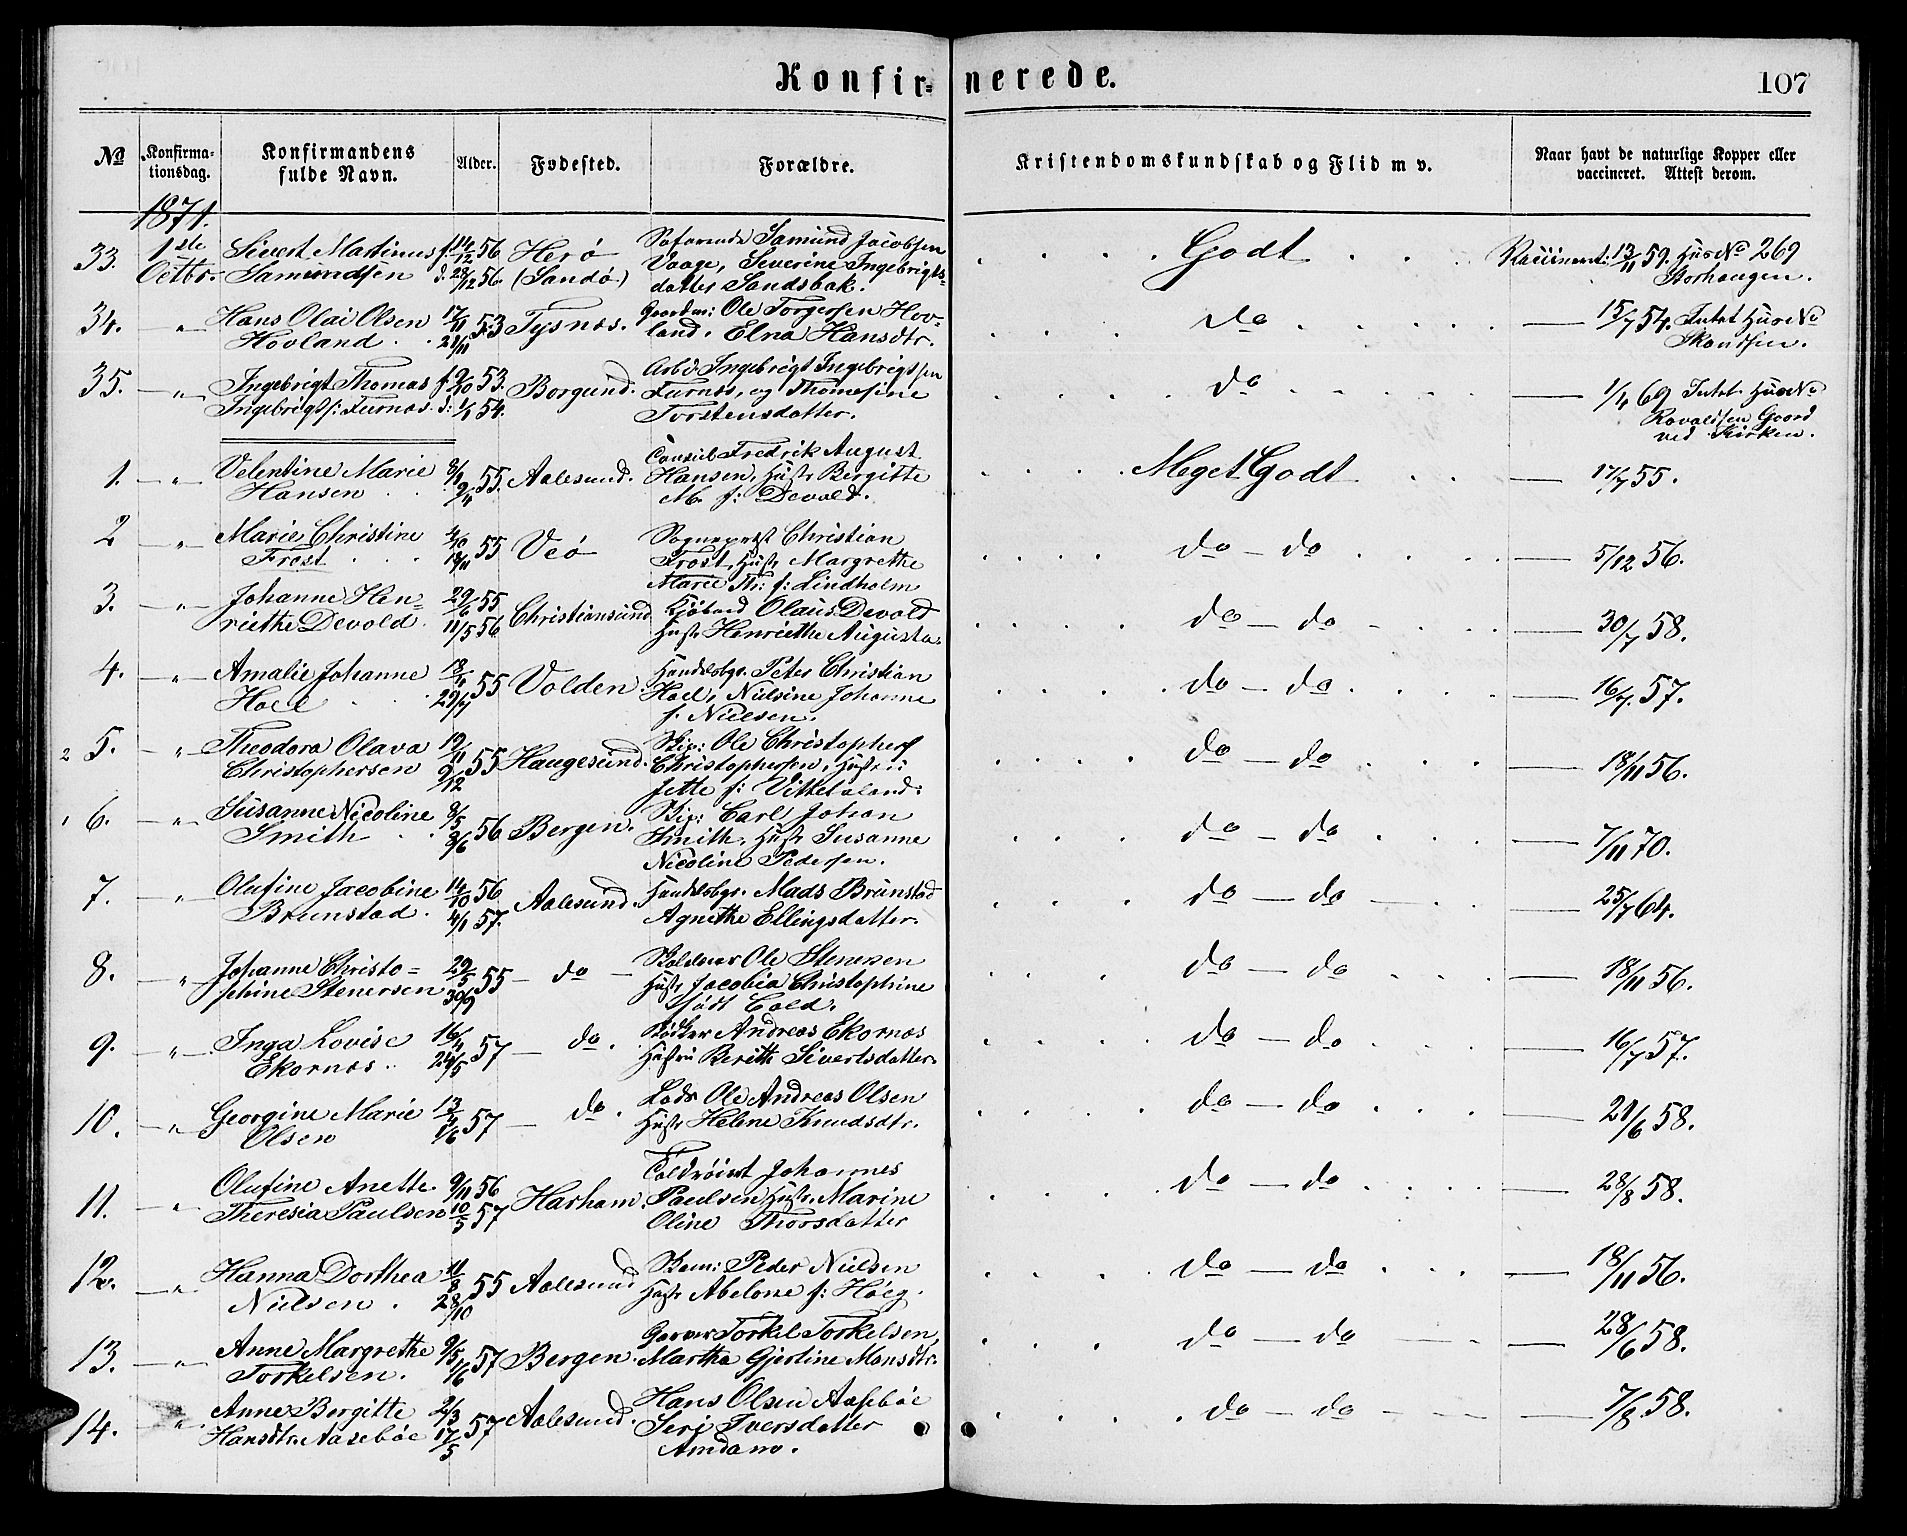 Konfir= nerede. 107
No Konfirma-tionsdag. Konfirmandens fulde Navn. Alder. Fødested. Forældre. Kristendomskundskab og Flid m v. Naar havt de naturlige Kopper eller vaccineret. Attest derom.
1871.
33. 1ste Sivert Martinus f. 14/12 56 Herø Søfarende Samund Jacobsen Godt 13/11 59. Hus No 269
Octbr. Samundsen d. 28/12 56. (Sandø) Vaage, Severine Ingebrigts= Storhaugen.
datter Sandsbak.
34. " Hans Olai Olsen 17/11 53 Tysnæs. Gaardm: Ole Torgersen Hov= do 15/7 54. Intet Hus No
Hovland 21/11 land. Elna Hansdtr.
35. " Ingebrigt Thomas f 9/10 53. Borgund. Arbd. Ingebrigt Ingebrigtsen do 1/4 69 Intet Hus No
Ingebrigts: Furnæs. d: 1/1 54. Furnæs, og Thomasine Gaard
Torstensdatter. ved Kirken.
1. " Velentine Marie 55. Aalesund. Consul Fredrik August Meget Godt 17/7 55.
Hansen Hansen, Hustr Bergitte
M. f: Devold.
2 " Marie Christine 55 Veø Sogneprest Christian do - do 5/12 56.
Frost 18/11 Frost, Hustr Margrethe
Marie Th: f: Lindholm
3. " Johanne Hen= 29/6 55 Christiansund Olaus Devold do - do 30/7 58.
riethe Devold. 11/5 56 Hustr Henriethe Augusta.
4. " Amalie Johanne 55 Volden Handelsbgr. Peter Christian do - do 57.
Hoel Hoel, Nielsine Johanne
f. Nielsen.
2 5. " Theodora Olava 19/11 55 Haugesund. Skip: Ole Christopher do - do 18/11 56.
Christophersen 9/12 Christophersen, Hustr
Jette f:
6. " Susanne Nicoline 8/5 56 Bergen. Skip: Carl Johan do - do 7/11 70.
Smith 8/6 Smith, Hustr Susanne
Nicoline Pedersen.
7. " Olufine Jacobine 14/10 56 Aalesund. Handelsbgr. Mads Brunstad do - do 25/7 64.
Brunstad. 4/1 57. Agnethe Ellingsdatter.
8. " Johanne Christo= 29/5 55 do Ole Stenersen do - do 18/11 56.
phine Stenersen 30/9 Hustr Jacobia Christophine
født Cold.
9. " Inga Lovise 16/4 57 do. Bødker Andreas Ekornæs do - do 16/7 57.
Ekornæs 24/5 Hustru Berithe Sivertsdatter.
10. " Georgine Marie 57 do. Lods Ole Andreas Olsen do - do 21/6 58.
Olsen 1/6 Hustr Helene Knudsdtr.
11. " Olufine Anette 9/11 56 Harham. Johannes do - do 28/8 58.
Theresia Paulsen 10/5 57 Paulsen Hustr. Marine
Oline Thorsdatter
12. " Hanna Dorthea 11/8 55 Aalesund Peder Nielsen do - do 18/11 56.
Nielsen. 28/10 Hustr Abelone f: Höeg.
13. " Anne Margrethe 9/5 57 Bergen. Garver Torkel Torkelsen, do - do 28/6 58.
Torkelsen. 1/6 Martha Gjertine Monsdtr.
14. " Anne Bergitte 2/3 57 Aalesund. Hans Olsen Aasebøe do - do 7/8 58.
Hansdtr. Aasebøe 17/5 Seri Iversdatter
Amdam.